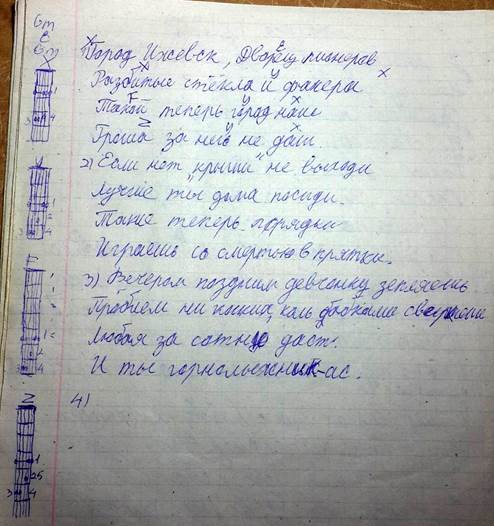 Gm
E
Gm
1) Город Ижевск, Дворец пионеров
Разбитые стёкла и факера
Такой теперь город наш
Гроша за него не дашь.
2) Если нет "крыши" не выходи
Лучше ты дома посиди.
Такие теперь порядки
Играешь со смертью в прятки.
3) Вечером поздним девчонку зацепяешь
Проблем ни каких, коль бабками
Любая за сотню даст.
И ты горнолыжник-ас.
4)